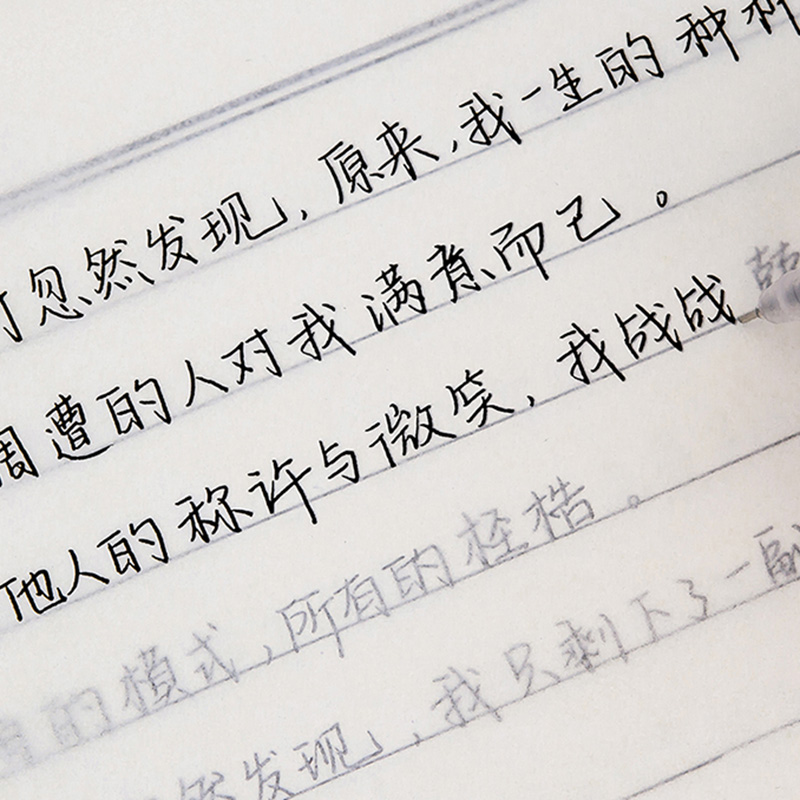 忽然发现，原来，我一生的种种
周遭的人对我满意而已。
他人的称许与微笑，我战战
的模式，所有的桎梏。
然发现，我只剩下了一副